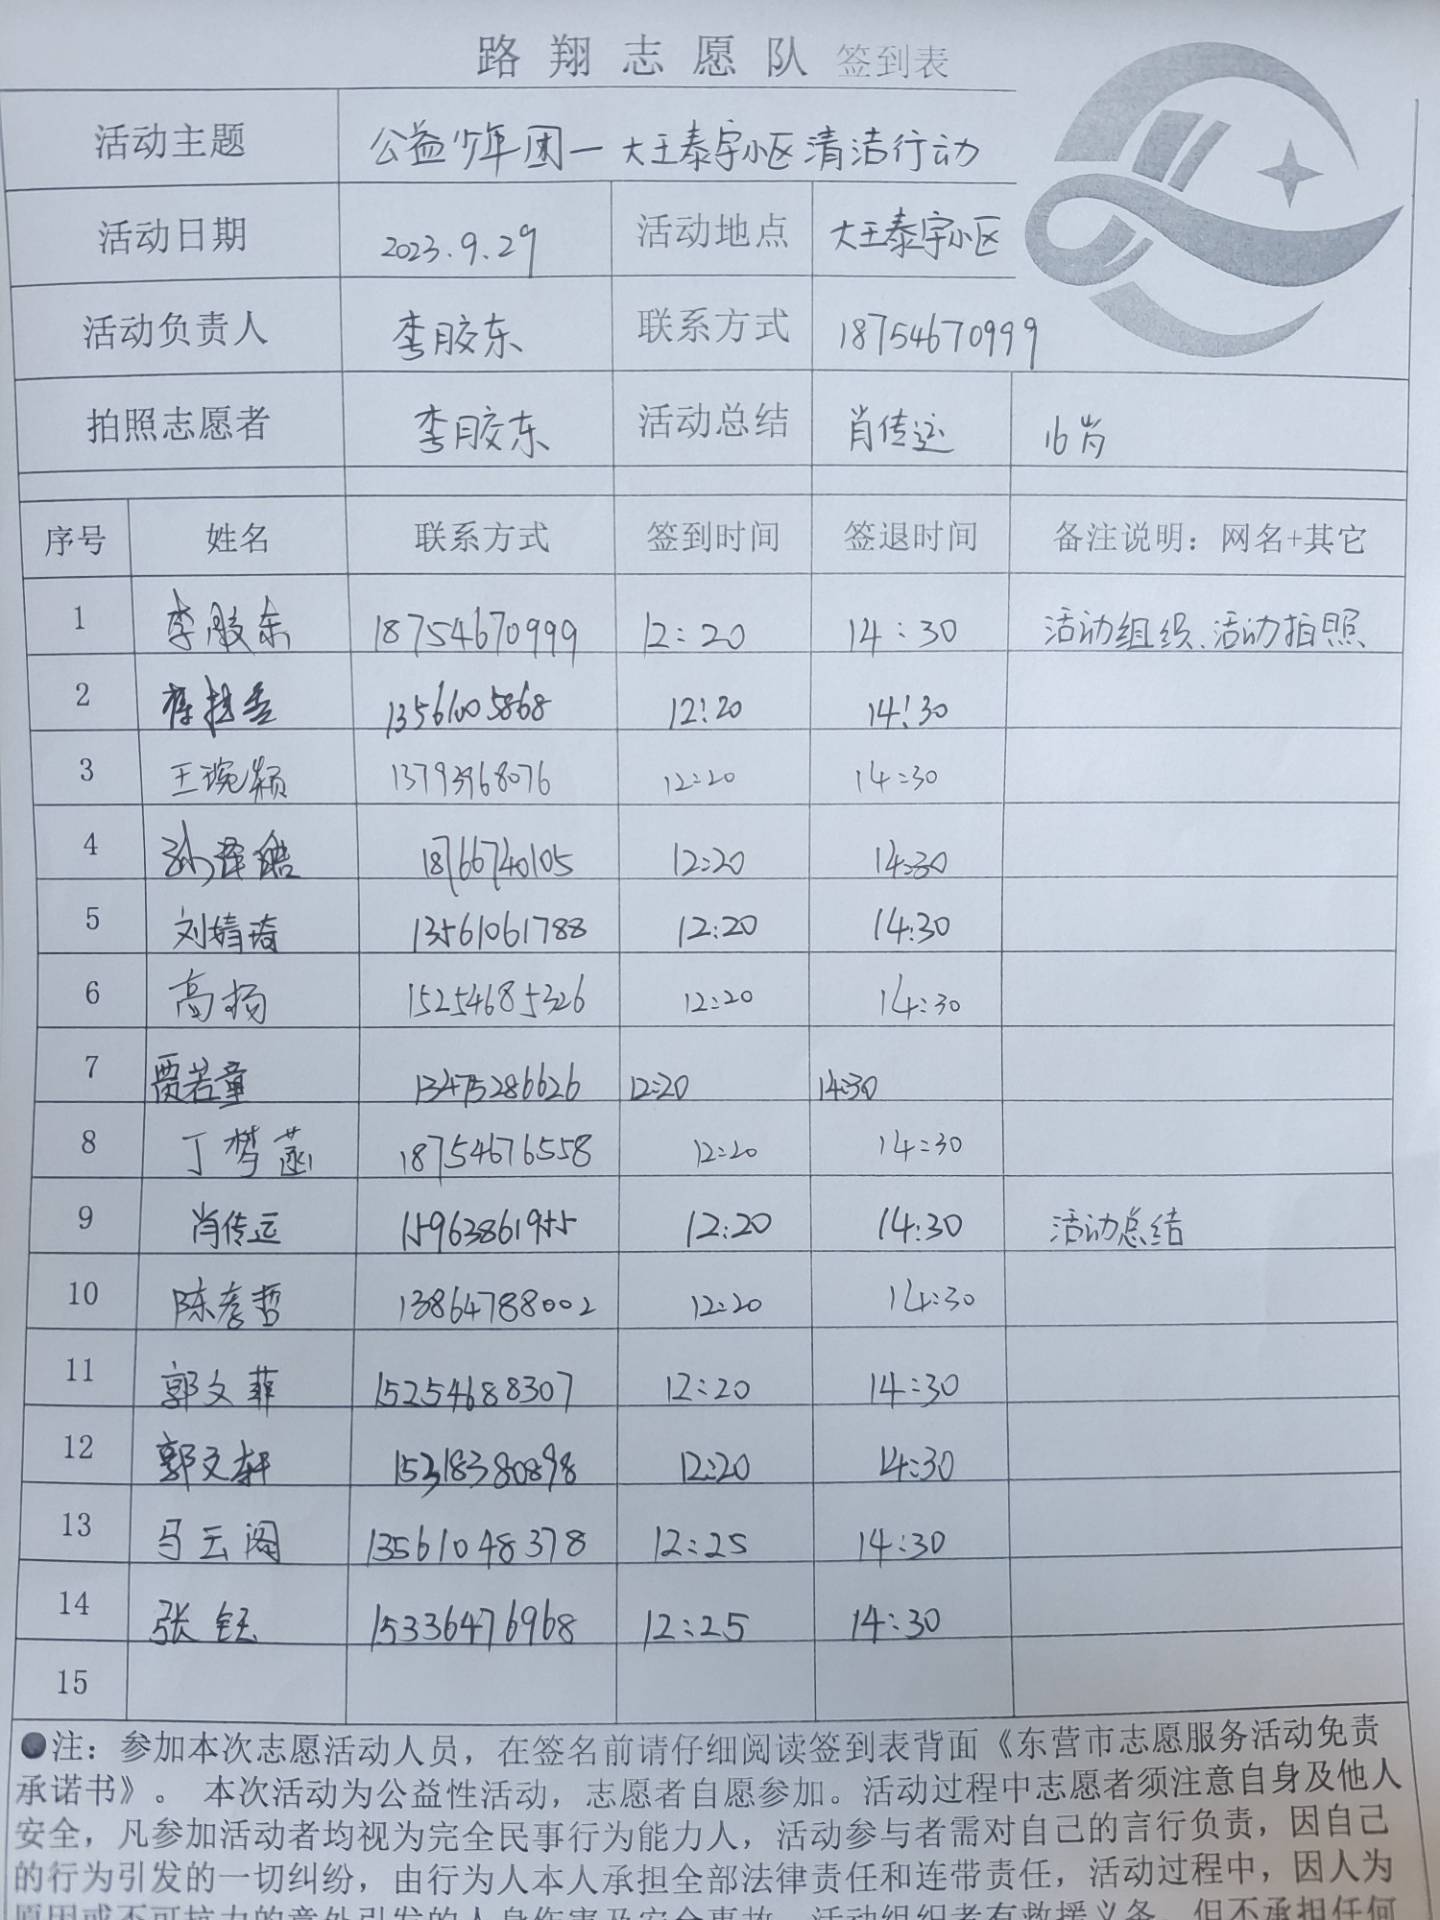 路翔志愿队 签到表
活动主题 公益少年团一大王泰宇小区清洁行动
活动日期 2023.9.29 活动地点 大王泰宇小区
活动负责人 李胶东 联系方式 18754670999
拍照志愿者 李胶东 活动总结 肖传运 16岁
序号 姓名 联系方式 签到时间 签退时间 备注说明：网名+其它
1 李胶东 18754670999 12:20 14:30 活动组织、活动拍照
2 13561005868 12:20 14:30
3 王琬颖 13793968076 12:20 14:30
4 孙泽皓 18766740105 12:20 14:30
5 刘婧琦 13561061788 12:20 14:30
6 高扬 15254685326 12:20 14:30
7 贾若童 13475286626 12:20 14:30
8 丁梦菡 18754676558 12:20 14:30
9 肖传运 15963861955 12:20 14:30 活动总结
10 陈彦哲 13864788002 12:20 14:30
11 郭文菲 15254688307 12:20 14:30
12 郭文轩 15318380898 12:20 14:30
13 马云阁 13561048378 12:25 14:30
14 张钰 15336476968 12:25 14:30
15
●注：参加本次志愿活动人员，在签名前请仔细阅读签到表背面《东营市志愿服务活动免责
承诺书》。 本次活动为公益性活动，志愿者自愿参加。活动过程中志愿者须注意自身及他人
安全，凡参加活动者均视为完全民事行为能力人，活动参与者需对自己的言行负责，因自己
的行为引发的一切纠纷，由行为人本人承担全部法律责任和连带责任，活动过程中，因人为
原因或不可抗力的意外引发的人身伤害及安全事故，活动组织者有救援义务，但不承担任何